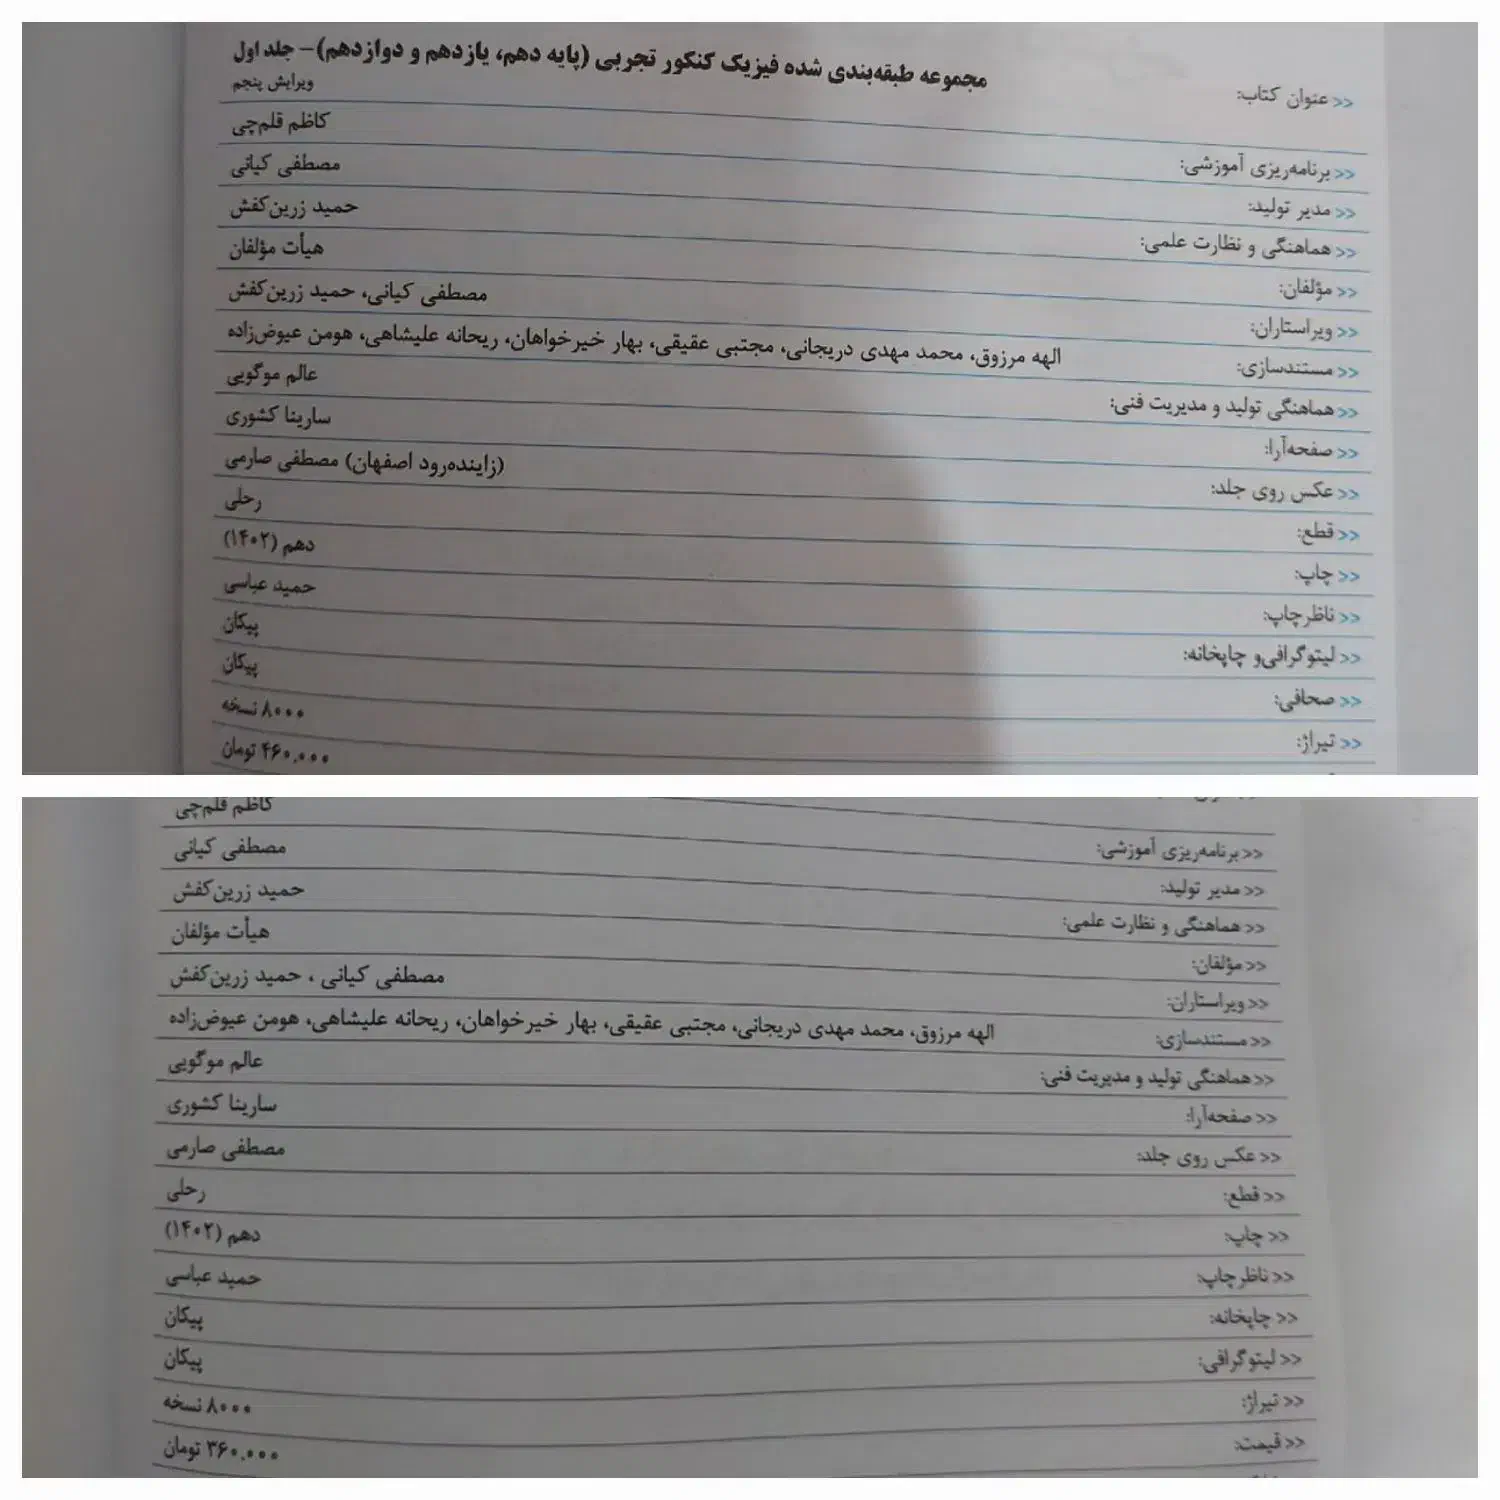 << عنوان کتاب: مجموعه طبقه‌بندی شده فیزیک کنکور تجربی (پایه دهم، یازدهم و دوازدهم)- جلد اول
ویرایش پنجم
<< برنامه‌ریزی آموزشی: کاظم قلم‌چی
<< مدیر تولید: مصطفی کیانی
<< هماهنگی و نظارت علمی: حمید زرین‌کفش
<< مؤلفان: هیأت مؤلفان
<< ویراستاران: مصطفی کیانی، حمید زرین‌کفش
<< مستندسازی: الهه مرزوق، محمد مهدی دریجانی، مجتبی عقیقی، بهار خیرخواهان، ریحانه علیشاهی، هومن عیوض‌زاده
<< هماهنگی تولید و مدیریت فنی: عالم موگویی
<< صفحه‌آرا: سارینا کشوری
<< عکس روی جلد: (زاینده‌رود اصفهان) مصطفی صارمی
<< قطع: رحلی
<< چاپ: دهم (۱۴۰۲)
<< ناظر چاپ: حمید عباسی
<< لیتوگرافی‌و چاپخانه: پیکان
<< صحافی: پیکان
<< تیراژ: ۸۰۰۰ نسخه
۴۶۰,۰۰۰ تومان
<< برنامه‌ریزی آموزشی: کاظم قلم‌چی
<< مدیر تولید: مصطفی کیانی
<< هماهنگی و نظارت علمی: حمید زرین‌کفش
<< مؤلفان: هیأت مؤلفان
<< ویراستاران: مصطفی کیانی ، حمید زرین‌کفش
<< مستندسازی: الهه مرزوق، محمد مهدی دریجانی، مجتبی عقیقی، بهار خیرخواهان، ریحانه علیشاهی، هومن عیوض‌زاده
<< هماهنگی تولید و مدیریت فنی: عالم موگویی
<< صفحه‌آرا: سارینا کشوری
<< عکس روی جلد: مصطفی صارمی
<< قطع: رحلی
<< چاپ: دهم (۱۴۰۲)
<< ناظر چاپ: حمید عباسی
<< چاپخانه: پیکان
<< لیتوگرافی: پیکان
<< تیراژ: ۸۰۰۰ نسخه
<< قیمت: ۳۶۰,۰۰۰ تومان